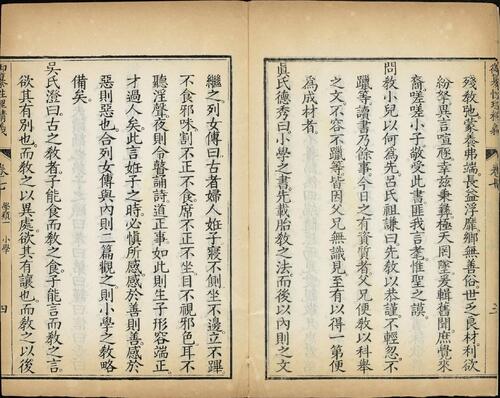 殘教弛蒙養弗端長益浮靡鄉無善俗世乏良材利欲
紛拏異言喧豗幸玆秉彝極天罔墜爰輯舊聞庶覺來
裔嗟嗟小子敬受此書匪我言耄惟聖之謨
問教小兒以何爲先呂氏祖謙曰先教以恭謹不輕忽不
躐等讀書乃餘事今日之有資質者父兄便教以科舉
之文不容不躐等皆因父兄無識見至有以得一第便
爲成材者
眞氏德秀曰小學之書先載胎教之法而後以內則之文
繼之列女傳曰古者婦人姙子寢不側坐不邊立不蹕
不食邪味割不正不食席不正不坐目不視邪色耳不
聽淫聲夜則令瞽誦詩道正事如此則生子形容端正
才過人矣此言姙子之時必愼所感感於善則善感於
惡則惡也合列女傳與內則二篇觀之則小學之教略
備矣
吳氏澄曰古之教者子能食而教之食子能言而教之言
欲其有別也而教之以異處欲其有讓也而教之以後
御纂性理精義 卷七 學類一 小學 四